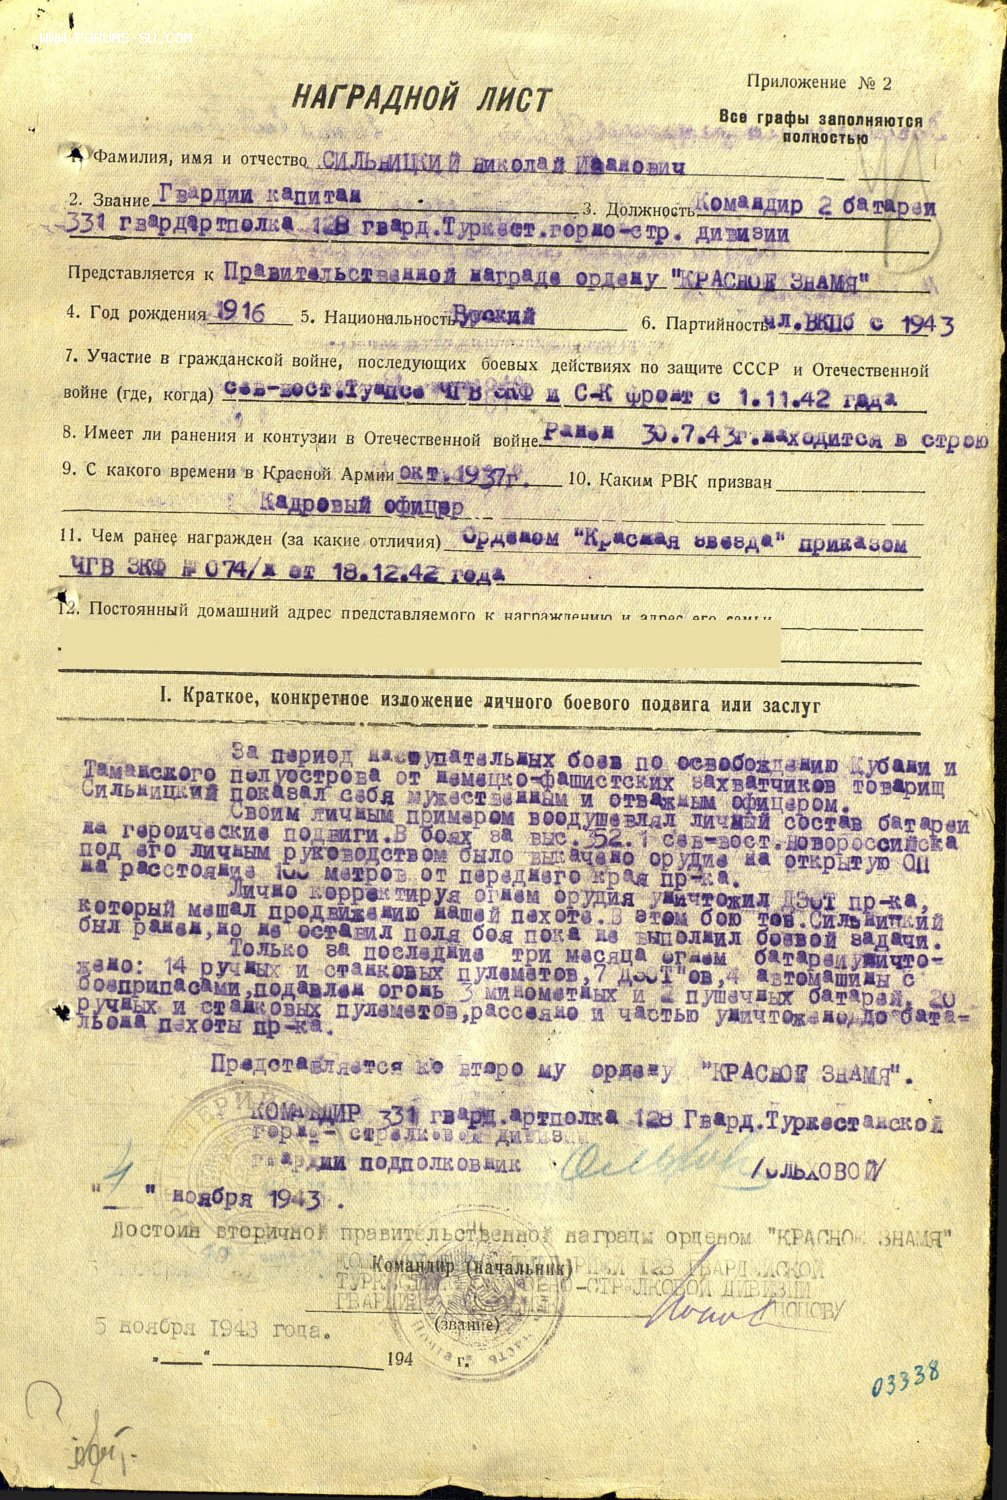 WWW.FORUMS-SU.COM
Приложение № 2
НАГРАДНОЙ ЛИСТ
Все графы заполняются
полностью
Фамилия, имя и отчество СИЛЬНИЦКИЙ Николай Иванович
2. Звание Гвардии капитан 3. Должность Командир 2 батареи
331 гвардартполка 128 гвард.Туркест.горно-стр. дивизии
Представляется к Правительственной награде ордену "КРАСНОЕ ЗНАМЯ"
4. Год рождения 1916 5. Национальность Русский 6. Партийность чл.ВКПб с 1943
7. Участие в гражданской войне, последующих боевых действиях по защите СССР и Отечественной
войне (где, когда) сев-вост.Туапсе ЧГВ ЗКФ и С-К фронт с 1.11.42 года
8. Имеет ли ранения и контузии в Отечественной войне Ранен 30.7.43г.находится в строю
9. С какого времени в Красной Армии окт.1937г. 10. Каким РВК призван
Кадровый офицер
11. Чем ранее награжден (за какие отличия) Орденом "Красная звезда" приказом
ЧГВ ЗКФ № 074/н от 18.12.42 года
12. Постоянный домашний адрес представляемого к награждению и адрес его семьи
I. Краткое, конкретное изложение личного боевого подвига или заслуг
За период наступательных боев по освобождению Кубани и
Таманского полуострова от немецко-фашистских захватчиков товарищ
Сильницкий показал себя мужественным и отважным офицером.
Своим личным примером воодушевлял личный состав батареи
на героические подвиги.В боях за выс.352.1 сев-вост.Новороссийска
под его личным руководством было выкачено орудие на открытую ОП
на расстояние 100 метров от переднего края пр-ка.
Лично корректируя огнем орудия уничтожил ДЗОТ пр-ка,
который мешал продвижению нашей пехоте.В этом бою тов.Сильницкий
был ранен,но не оставил поля боя пока не выполнил боевой задачи.
Только за последние три месяца огнем батареи уничто-
жено: 14 ручных и станковых пулеметов,7 ДЗОТ"ов,4 автомашины с
боеприпасами,подавлен огонь 3 минометных и 2 пушечных батарей, 20
ручных и станковых пулеметов,рассеяно и частью уничтожено до бата-
льона пехоты пр-ка.
Представляется ко второ му ордену "КРАСНОЕ ЗНАМЯ".
КОМАНДИР 331 гвард.артполка 128 Гвард.Туркестанской
горно- стрелковой дивизии
гвардии подполковник Ольховой /ОЛЬХОВОЙ/
" 4 " ноября 1943 .
Достоин вторичной правительственной награды орденом "КРАСНОЕ ЗНАМЯ"
128 ГВАРДЕЙСКОЙ
Командир (начальник)
ТУРКЕСТАНСКОЙ ГОРНО-СТРЕЛКОВОЙ ДИВИЗИИ
ГВАРДИИ Попов /ПОПОВ/
(звание)
5 ноября 1943 года.
"___" 194 г.
03338